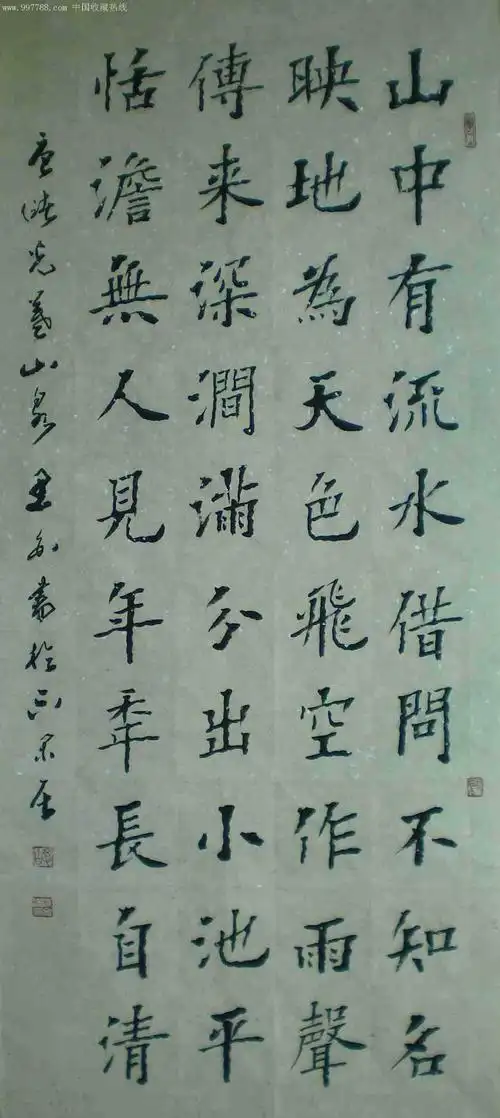 www.997788.com 中国收藏热线
山中有流水借問不知名
映地為天色飛空作雨聲
傳来深澗滿分出小池平
恬澹無人見年秊長自清
唐儲光羲山泉